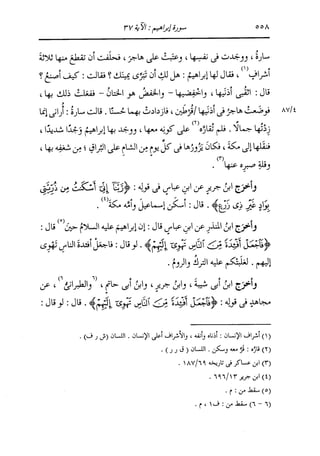 ٥٥٨ سورة إبراهيم : الآية ٣٧
سارةُ ، ووجَدت فى نفسِها ، وعتَبتْ على هاجرَ ، فحلَفت أن تقطعَ منها ثلاثةَ
أشرافٍ(١) ، فقال لها إبراهيمُ : هل لكِ أن تَبَرِّى يمينَك ؟ فقالت : كيف أصنعُ ؟
قال : اثقُبى أذنَيها ، واخفِضيها – والخفضُ هو الختانُ – ففعَلتْ ذلك بها ،
٨٧/٤ فوضَعتْ هاجرُ فى أذنَيها قُرْطَينِ ، فازدادتْ بهما حُسنًا . قالت سارةُ : أُرانى إنما
زِدْتُها جمالًا . فلم تُقارَّه(٢) على كونِه معها ، ووجَد بها إبراهيمُ وَجْدًا شديدًا ،
فنقَلها إلى مكةَ ، فكان يَزورُها فى كلِّ يومٍ من الشامِ على البُراقِ ؛ من شغفِه بها ،
وقلةِ صبرِه عنها(٣) .
وأخرَج ابنُ جريرٍ عن ابنِ عباسٍ فى قولِه : ﴿رَّبَّنَآ إِنِّىٓ أَسْكَنتُ مِن ذُرِّيَّتِى
بِوَادٍ غَيْرِ ذِى زَرْعٍ﴾ . قال : أسكَن إسماعيلَ وأمَّه مكةَ(٤) .
وأخرَج ابنُ المنذرِ عن ابنِ عباسٍ قال : إن إبراهيمَ عليه السلامُ حينَ(٥) قال :
﴿فَٱجْعَلْ أَفْـِٔدَةً مِّنَ ٱلنَّاسِ تَهْوِىٓ إِلَيْهِمْ﴾ . لو قال : فاجعَلْ أفئدةَ الناسِ تَهْوى
إليهم . لغلَبَتْكم عليه التركُ والرومُ .
وأخرَج ابنُ أبى شيبةَ ، وابنُ جريرٍ ، وابنُ أبى حاتمٍ ، (٦والطبرانىُّ٦) ، عن
مجاهدٍ فى قولِه : ﴿فَٱجْعَلْ أَفْـِٔدَةً مِّنَ ٱلنَّاسِ تَهْوِىٓ إِلَيْهِمْ﴾ . قال : لو قال :
(١) أشراف الإنسان : أذناه وأنفه ، والأشراف أعلى الإنسان . اللسان (ش ر ف) .
(٢) قارّه : قرّ معه وسكن . اللسان (ق ر ر) .
(٣) ابن عساكر فى تاريخه ١٨٧/٦٩ .
(٤) ابن جرير ٦٩٦/١٣ .
(٥) سقط من : م .
(٦ – ٦) سقط من : ف١ ، م .